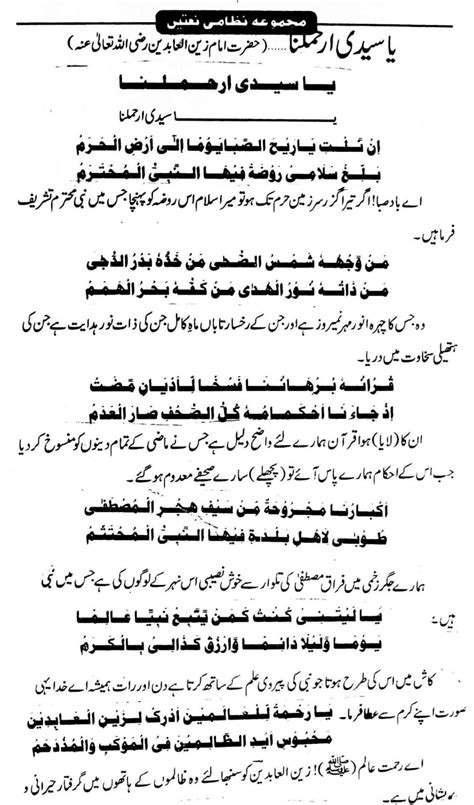 مجموعہ نظامی نعتیں
یا سیدی ارحملنا......(حضرت امام زین العابدین رضی اللہ تعالیٰ عنہ)
یا سیدی ارحملنا
یا سیدی ارحملنا
اِنْ نَلْتِ یَا رِیْحَ الصَّبَا یَوْمًا اِلٰی اَرْضِ الْحَرَمِ
بَلِّغْ سَلَامِیْ رَوْضَةً فِیْهَا النَّبِیُّ الْمُحْتَرَمُ
اے بادصبا! اگر تیرا گزر سرزمین حرم تک ہو تو میرا سلام اس روضہ کو پہنچا جس میں نبی محترم تشریف
فرما ہیں۔
مَنْ وَّجْهُهٗ شَمْسُ الضُّحٰی مَنْ خَدُّهٗ بَدْرُ الدُّجٰی
مَنْ ذَاتُهٗ نُوْرُ الْهُدٰی مَنْ كَفُّهٗ بَحْرُ الْهِمَمِ
وہ جس کا چہرہ انور مہر نیمروز ہے اور جن کے رخسار تاباں ماہ کامل جن کی ذات نور ہدایت ہے جن کی
ہتھیلی سخاوت میں دریا۔
قُرْاٰنُهٗ بُرْهَانُنَا نَسْخًا لِّاَدْیَانٍ مَّضَتْ
اِذْ جَاءَنَا اَحْكَامُهٗ كُلُّ الصُّحُفِ صَارَ الْعَدَمُ
ان کا (لایا) ہوا قرآن ہمارے لئے واضح دلیل ہے جس نے ماضی کے تمام دینوں کو منسوخ کر دیا
جب اس کے احکام ہمارے پاس آئے تو (پچھلے) سارے صحیفے معدوم ہو گئے۔
اَكْبَارُنَا مَجْرُوْحَةٌ مِّنْ سَیْفِ هِجْرِ الْمُصْطَفٰی
طُوْبٰی لِاَهْلِ بَلْدَةٍ فِیْهَا النَّبِیُّ الْمُحْتَشَمُ
ہمارے جگر زخمی ہیں فراق مصطفیٰ کی تلوار سے خوش نصیبی اس شہر کے لوگوں کی ہے جس میں نبی
ہیں۔
یَا لَیْتَنِیْ كُنْتُ كَمَنْ یَّتَّبِعُ نَبِیًّا عَالِمًا
یَوْمًا وَّلَیْلًا دَائِمًا وَّارْزُقْ كَذَالِیْ بِالْكَرَمِ
کاش میں اس کی طرح ہوتا جو نبی کی پیروی علم کے ساتھ کرتا ہے دن اور رات ہمیشہ اے خدا یہی
صورت اپنے کرم سے عطا فرما۔
یَا رَحْمَةً لِّلْعَالَمِیْنَ اَدْرِكْ لِزَیْنِ الْعَابِدِیْنَ
مَحْبُوْسُ اَیْدِ الظَّالِمِیْنَ فِی الْمَوْكَبِ وَالْمُزْدَحَمِ
اے رحمت عالم (ﷺ)! زین العابدین کو سنبھالئے وہ ظالموں کے ہاتھوں میں گرفتار حیرانی و
پریشانی میں ہے۔